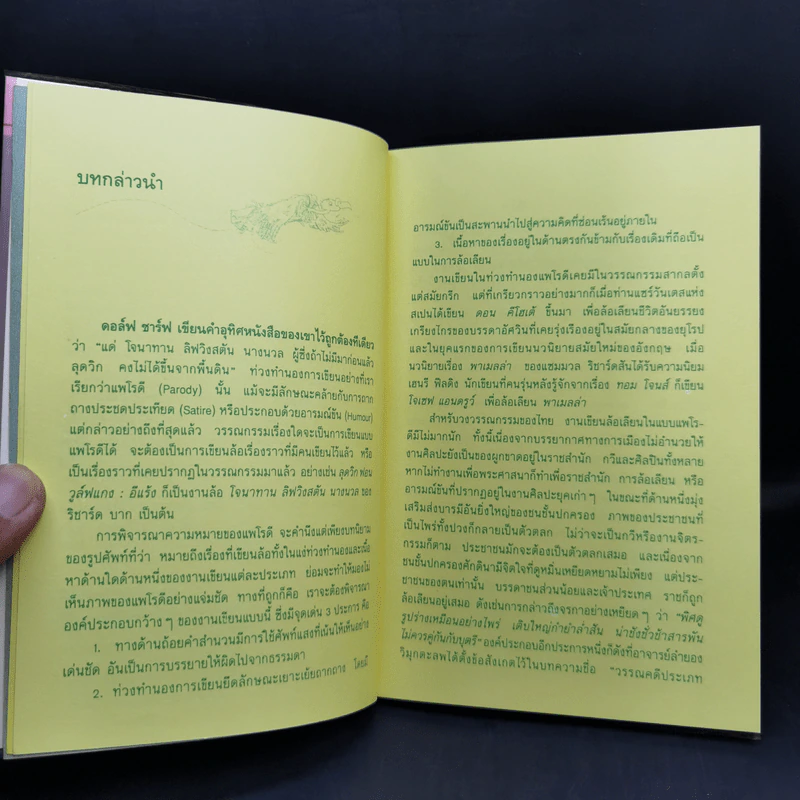 บทกล่าวนำ
ดอล์ฟ ชาร์ฟ เขียนคำอุทิศหนังสือของเขาไว้ถูกต้องทีเดียว
ว่า "แด่ โจนาทาน ลิฟวิงสตัน นางนวล ผู้ซึ่งถ้าไม่มีมาก่อนแล้ว
ลุดวิก คงไม่ได้ขึ้นจากพื้นดิน" ท่วงทำนองการเขียนอย่างที่เรา
เรียกว่าแพโรดี (Parody) นั้น แม้จะมีลักษณะคล้ายกับการถาก
ถางประชดประเทียด (Satire) หรือประกอบด้วยอารมณ์ขัน (Humour)
แต่กล่าวอย่างถึงที่สุดแล้ว วรรณกรรมเรื่องใดจะเป็นการเขียนแบบ
แพโรดีได้ จะต้องเป็นการเขียนล้อเรื่องราวที่มีคนเขียนไว้แล้ว หรือ
เป็นเรื่องราวที่เคยปรากฏในวรรณกรรมมาแล้ว อย่างเช่น ลุดวิก ฟอน
วูล์ฟแกง : อีแร้ง ก็เป็นงานล้อ โจนาทาน ลิฟวิงสตัน นางนวล ของ
ริชาร์ด บาก เป็นต้น
การพิจารณาความหมายของแพโรดี จะคำนึงแต่เพียงบทนิยาม
ของรูปศัพท์ที่ว่า หมายถึงเรื่องที่เขียนล้อทั้งในแง่ท่วงทำนองและเนื้อ
หาด้านใดด้านหนึ่งของงานเขียนแต่ละประเภท ย่อมจะทำให้มองไม่
เห็นภาพของแพโรดีอย่างแจ่มชัด ทางที่ถูกก็คือ เราจะต้องพิจารณา
องค์ประกอบกว้าง ๆ ของงานเขียนแบบนี้ ซึ่งมีจุดเด่น 3 ประการ คือ
1. ทางด้านถ้อยคำสำนวนมีการใช้ศัพท์แสงที่เน้นให้เห็นอย่าง
เด่นชัด อันเป็นการบรรยายให้ผิดไปจากธรรมดา
2. ท่วงทำนองการเขียนยึดลักษณะเยาะเย้ยถากถาง โดยมี
อารมณ์ขันเป็นสะพานนำไปสู่ความคิดที่ซ่อนเร้นอยู่ภายใน
3. เนื้อหาของเรื่องอยู่ในด้านตรงกันข้ามกับเรื่องเดิมที่ถือเป็น
แบบในการล้อเลียน
งานเขียนในท่วงทำนองแพโรดีเคยมีในวรรณกรรมสากลตั้ง
แต่สมัยกรีก แต่ที่เกรียวกราวอย่างมากก็เมื่อท่านแซร์วันเตสแห่ง
สเปนได้เขียน ดอน คิโฮเต้ ขึ้นมา เพื่อล้อเลียนชีวิตอันยรรยง
เกรียงไกรของบรรดาอัศวินที่เคยรุ่งเรืองอยู่ในสมัยกลางของยุโรป
และในยุคแรกของการเขียนนวนิยายสมัยใหม่ของอังกฤษ เมื่อ
นวนิยายเรื่อง พาเมลล่า ของแซมมวล ริชาร์ดสันได้รับความนิยม
เฮนรี ฟิลดิง นักเขียนที่คนรุ่นหลังรู้จักจากเรื่อง ทอม โจนส์ ก็เขียน
โจเซฟ แอนดรูว์ เพื่อล้อเลียน พาเมลล่า
สำหรับวงวรรณกรรมของไทย งานเขียนล้อเลียนในแบบแพโร-
ดีมีไม่มากนัก ทั้งนี้เนื่องจากบรรยากาศทางการเมืองไม่อำนวยให้
งานศิลปะยังเป็นของผูกขาดอยู่ในราชสำนัก กวีและศิลปินทั้งหลาย
หากไม่ทำงานเพื่อพระศาสนาก็ทำเพื่อราชสำนัก การล้อเลียน หรือ
อารมณ์ขันที่ปรากฏอยู่ในงานศิลปะยุคเก่า ๆ ในขณะที่ด้านหนึ่งมุ่ง
เสริมส่งบารมีอันยิ่งใหญ่ของชนชั้นปกครอง ภาพของประชาชนที่
เป็นไพร่ทั้งปวงก็กลายเป็นตัวตลก ไม่ว่าจะเป็นกวีหรืองานจิตร-
กรรมก็ตาม ประชาชนมักจะต้องเป็นตัวตลกเสมอ และเนื่องจาก
ชนชั้นปกครองศักดินามีจิตใจที่ดูหมิ่นเหยียดหยามไม่เพียง แต่ประ-
ชาชนของตนเท่านั้น บรรดาชนส่วนน้อยและเจ้าประเทศ ราชก็ถูก
ล้อเลียนอยู่เสมอ ดังเช่นการกล่าวถึงจรกาอย่างเหยียด ๆ ว่า "พิศดู
รูปร่างเหมือนอย่างไพร่ เติบใหญ่กำยำล่ำสัน น่าชังชั่วช้าสารพัน
ไม่ควรคู่กันกับบุตรี" องค์ประกอบอีกประการหนึ่งก็ดังที่อาจารย์ลำยอง
วิมุกตะลพได้ตั้งข้อสังเกตไว้ในบทความชื่อ "วรรณคดีประเภท